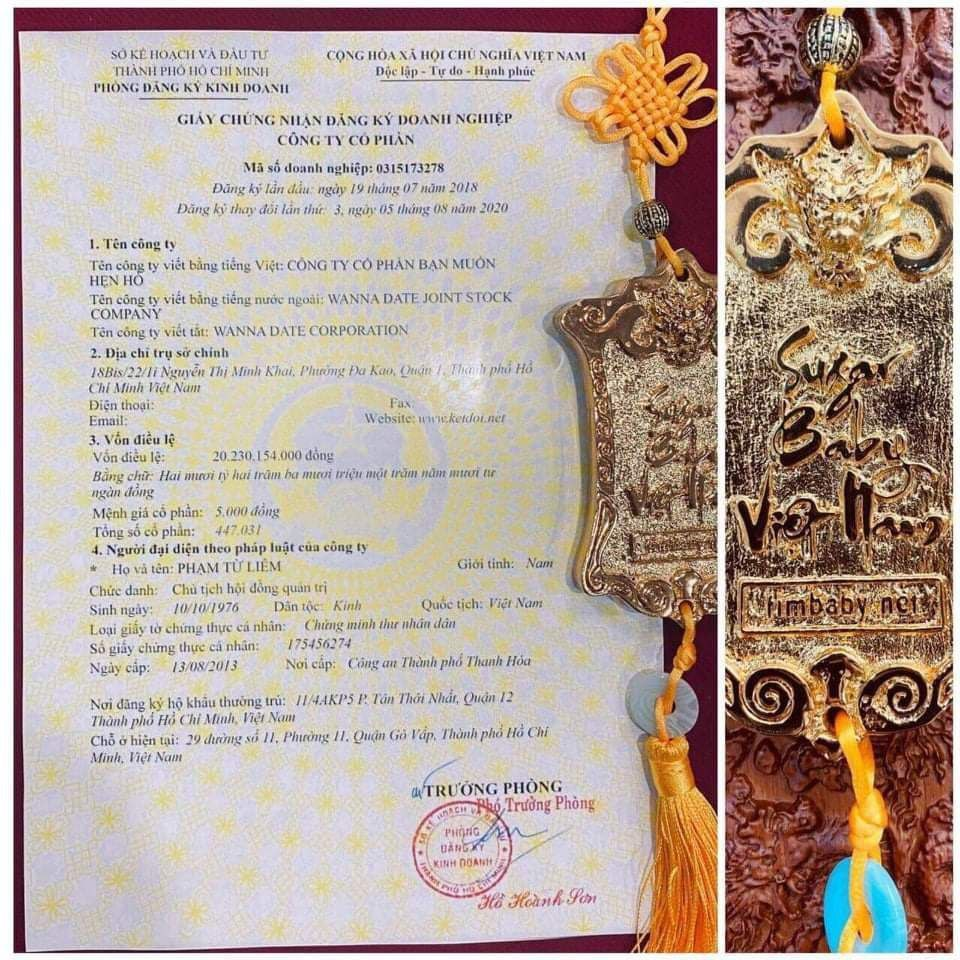 SỞ KẾ HOẠCH VÀ ĐẦU TƯ
THÀNH PHỐ HỒ CHÍ MINH
PHÒNG ĐĂNG KÝ KINH DOANH
CỘNG HÒA XÃ HỘI CHỦ NGHĨA VIỆT NAM
Độc lập - Tự do - Hạnh phúc
GIẤY CHỨNG NHẬN ĐĂNG KÝ DOANH NGHIỆP
CÔNG TY CỔ PHẦN
Mã số doanh nghiệp: 0315173278
Đăng ký lần đầu: ngày 19 tháng 07 năm 2018
Đăng ký thay đổi lần thứ: 3, ngày 05 tháng 08 năm 2020
1. Tên công ty
Tên công ty viết bằng tiếng Việt: CÔNG TY CỔ PHẦN BẠN MUỐN
HẸN HÒ
Tên công ty viết bằng tiếng nước ngoài: WANNA DATE JOINT STOCK
COMPANY
Tên công ty viết tắt: WANNA DATE CORPORATION
2. Địa chỉ trụ sở chính
18Bis/22/1i Nguyễn Thị Minh Khai, Phường Đa Kao, Quận 1, Thành phố Hồ
Chí Minh Việt Nam
Điện thoại: Fax:
Email: Website: www.ketdoi.net
3. Vốn điều lệ
Vốn điều lệ: 20.230.154.000 đồng
Bằng chữ: Hai mươi tỷ hai trăm ba mươi triệu một trăm năm mươi tư
ngàn đồng
Mệnh giá cổ phần: 5.000 đồng
Tổng số cổ phần: 447.031
4. Người đại diện theo pháp luật của công ty
* Họ và tên: PHẠM TỪ LIÊM Giới tính: Nam
Chức danh: Chủ tịch hội đồng quản trị
Sinh ngày: 10/10/1976 Dân tộc: Kinh Quốc tịch: Việt Nam
Loại giấy tờ chứng thực cá nhân: Chứng minh thư nhân dân
Số giấy chứng thực cá nhân: 175456274
Ngày cấp: 13/08/2013 Nơi cấp: Công an Thành phố Thanh Hóa
Nơi đăng ký hộ khẩu thường trú: 11/4AKP5 P. Tân Thới Nhất, Quận 12
Thành phố Hồ Chí Minh, Việt Nam
Chỗ ở hiện tại: 29 đường số 11, Phường 11, Quận Gò Vấp, Thành phố Hồ Chí
Minh, Việt Nam
TRƯỞNG PHÒNG
Phó Trưởng Phòng
SỞ KẾ HOẠCH VÀ ĐẦU TƯ
PHÒNG
ĐĂNG KÝ
KINH DOANH
THÀNH PHỐ HỒ CHÍ MINH
Hồ Hoành Sơn
Sugar
Việt Nam
Sugar
Baby
Việt Nam
rimbaby.net